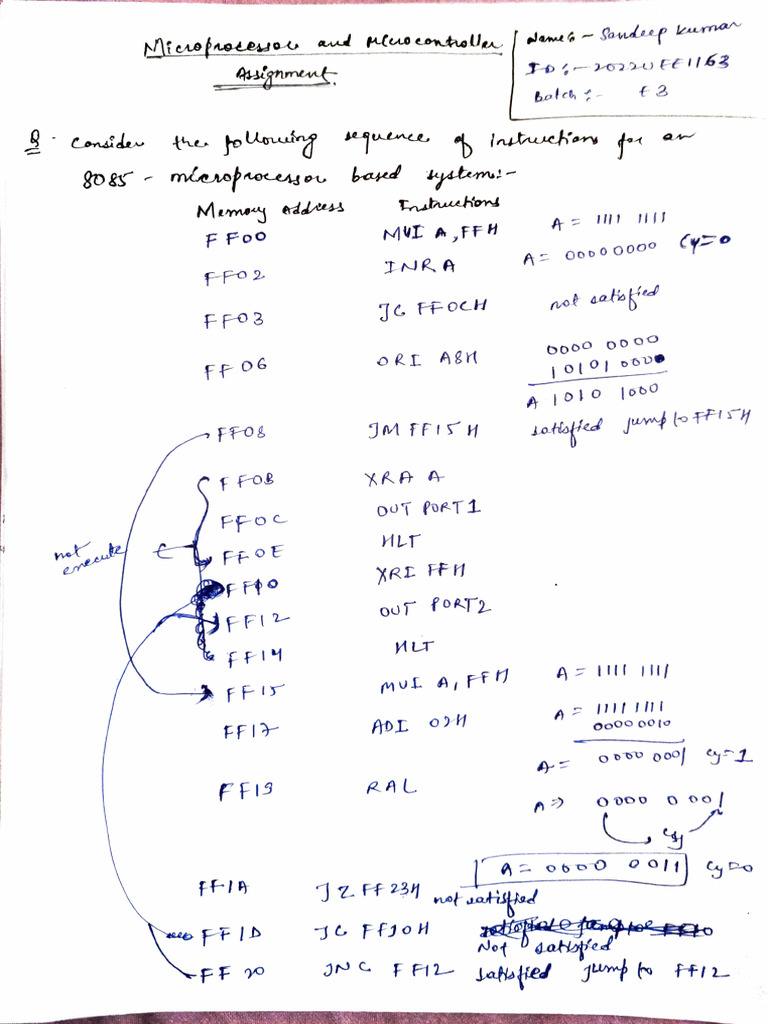 Microprocessor and Microcontroller
Assignment
Name:- Sandeep Kumar
ID:- 2022UEE1163
Batch:- E3
Q. Consider the following sequence of instructions for an
8085 - microprocessor based system:-
Memory Address Instructions
FF00 MVI A, FFH A = 1111 1111
FF02 INR A A = 00000000 Cy=0
FF03 JC FF0CH not satisfied
0000 0000
FF06 ORI A8H 10101 000
A 1010 1000
FF08 JM FF15H satisfied jump to FF15H
FF0B XRA A
FF0C OUT PORT1
not execute
FF0E HLT
FF10 XRI FFH
FF12 OUT PORT2
FF14 HLT
FF15 MVI A, FFH A = 1111 1111
FF17 ADI 02H A = 1111 1111
0000 0010
A = 0000 0001 Cy=1
FF19 RAL A => 0000 0001
Cy
A = 0000 0011 Cy=0
FF1A JZ FF23H not satisfied
FF1D JC FF10H
Not satisfied
FF20 JNC FF12 satisfied jump to FF12